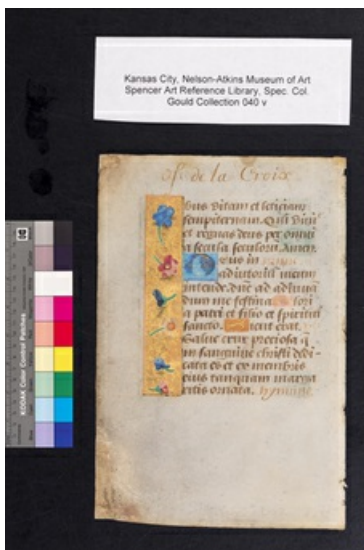 Kansas City, Nelson-Atkins Museum of Art
Spencer Art Reference Library, Spec. Col.
Gould Collection 040 v
of. de la Croix
bus vitam et leticiam
sempiternam. Qui vivis
et regnas deus per omnia
secula seculoru Amen.
us in
ad iutoriū meum
intende. dñe ad adiuuā
dum me festina. lori
a patri et filio et spiritui
sancto. icut erat.
Salue crux preciosa q
in sanguine christi dedi-
cata es et ex membris
eius tanquam marga
ritis ornata.
KODAK Color Control Patches